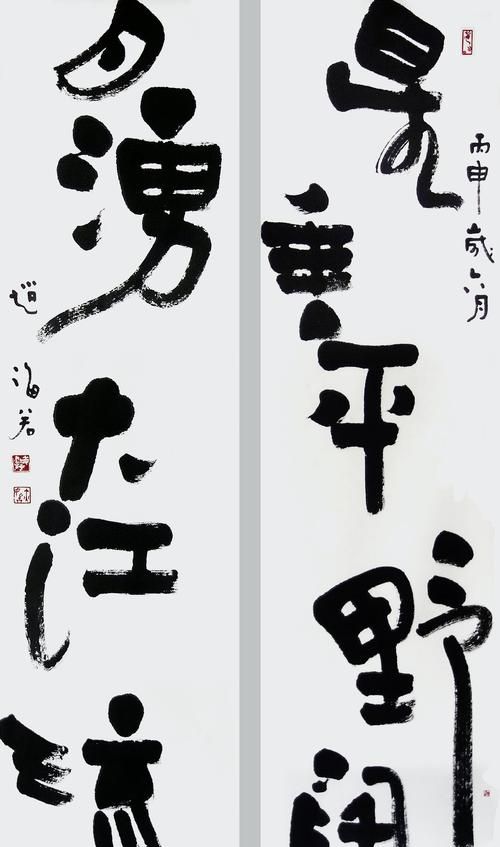 星垂平野闊
丙申歲六月
月湧大江流
趙海若